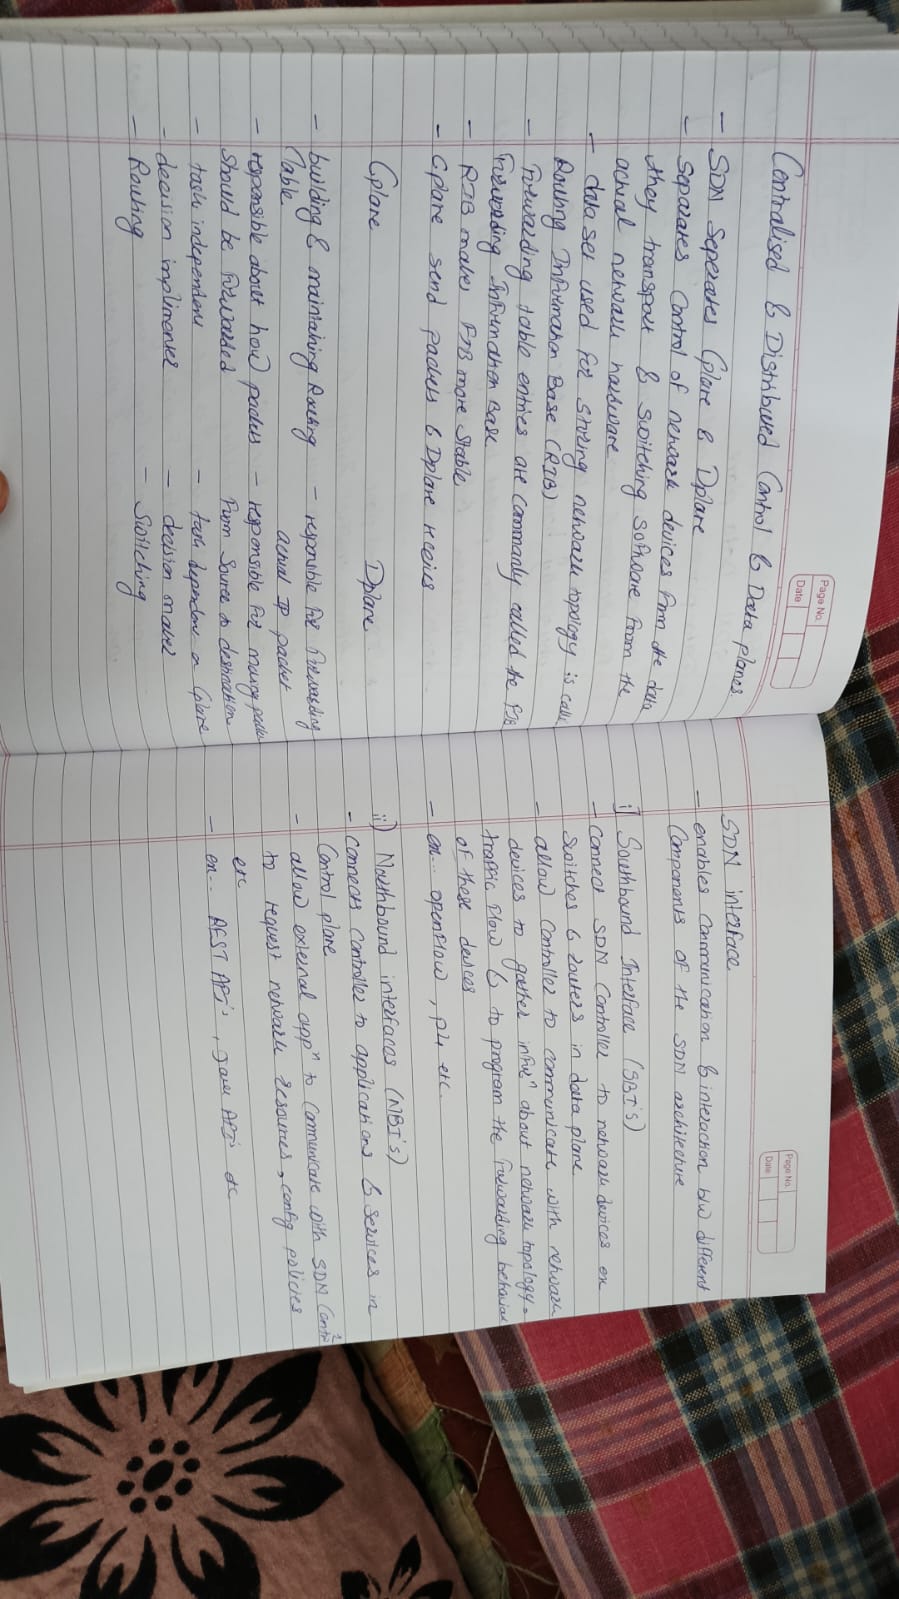 Page No.
Date
Centralised & Distributed Control & Data planes.
- SDN Seperates Cplane & Dplane
- Separates Control of network devices from the data
they transport & switching software from the
actual network hardware
- data set used for storing network topology is calle
Routing Information Base (RIB)
- Forwarding table entries are commanly called the FIB
Forwarding Information Base
- RIB makes FIB more Stable
- Cplane send packets & Dplane recives
Cplane Dplane
- building & maintaining Routing - responsible for forwarding
Table actual IP packet
- responsible about how packets - responsible for moving packe
should be forwarded from Source to destination
- task independent - task dependent on Cplane
- decision implimenter - decision maker
- Routing - Switching
Page No.
Date
SDN interface
- enables Communication & interaction b/w different
Components of the SDN architecture
i] Southbound Interface (SBI's)
- connect SDN Controller to network devices ex
switches & routers in data plane
- allow Controller to communicate with network
devices to gather infor^n about network topology.
traffic flow & to program the forwarding behaviour
of these devices
- ex... openflow, p4 etc.
ii) Northbound interfaces (NBI's)
- connects controller to applications & services in
Control plane
- allow external app^n to Communicate with SDN Contr
to request network resources, config policies
etc
- ex... REST API's, java API's etc